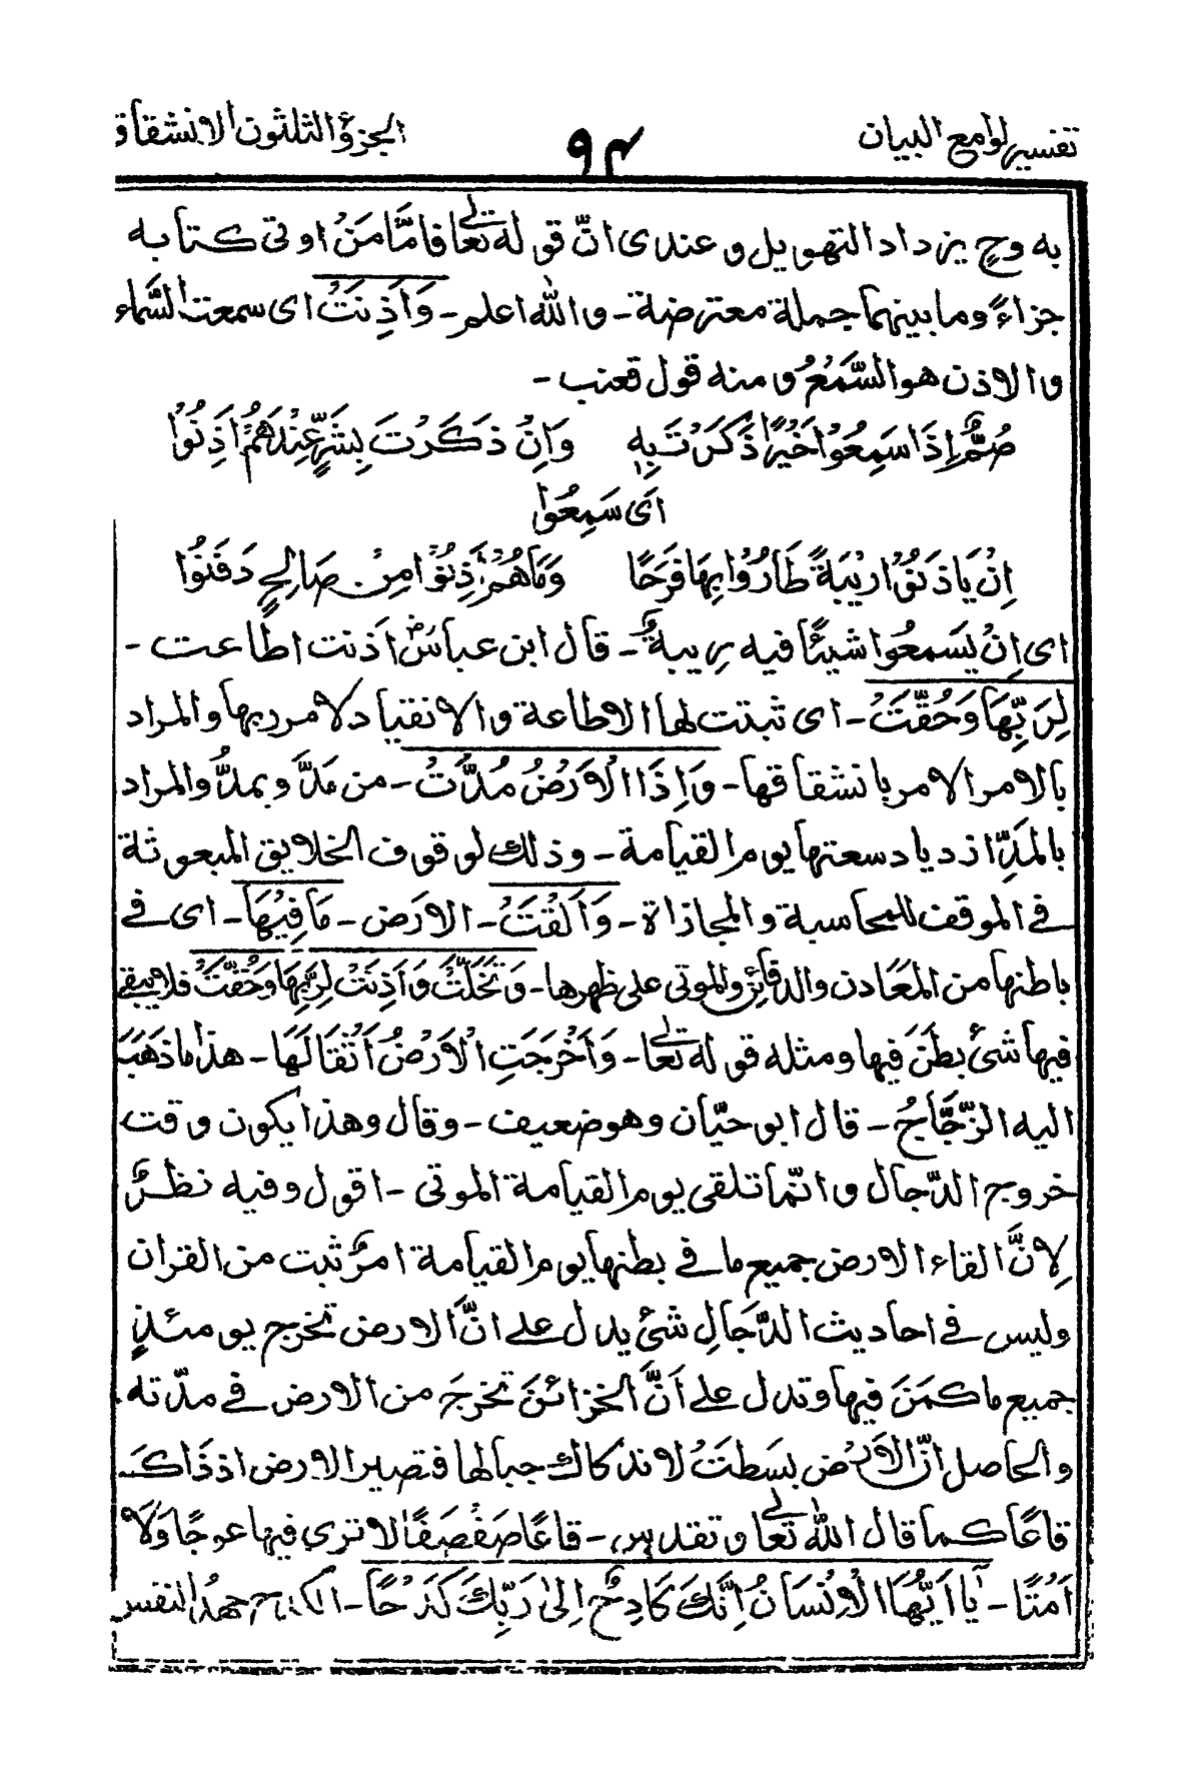 تفسير لوامع البيان ٩٤ الجزؤ الثلثون الانشقاق
به وحٍ يزداد التهويل وعندى انّ قوله تعالى فامَّا مَنْ اوتى كتابه
جزاءً وما بينهما جملة معترضة - والله اعلم - وَاَذِنَتْ اى سمعت السَّماء
والاذن هو السَّمْعُ ومنه قول قعنب -
صُمٌّ اِذَا سَمِعُوْا خَيْرًا ذُكِرْتُ بِهٖ وَاِنْ ذُكِرْتُ بِشَرٍّ عِنْدَهُمْ اَذِنُوْا
اَى سَمِعُوْا
اِنْ يَاذَنُوْا رِيْبَةً طَارُوْا بِهَا فَرَحًا وَمَا هُمْ اَذِنُوْا مِنْ صَالِحٍ دَفَنُوْا
اى اِنْ يَسمعُوا شيئًا فيه ريبةٌ - قال ابن عباسؓ اَذنت اطاعت -
لِرَبِّهَا وَحُقَّتْ - اى ثبتت لها الاطاعة والانقياد لامر ربها والمراد
بالامر الامر بانشقاقها - وَاِذَا الْاَرْضُ مُدَّتْ - من مَدَّ و يمدُّ والمراد
بالمَدِّ ازدياد سعتها يوم القيامة - وذلك لوقوف الخلايق المبعوثة
فى الموقف للمحاسبة والمجازاة - وَاَلْقَتْ - الارَض - مَا فِيْهَا - اى فى
باطنها من المعَادن والدفائن والموتى على ظهرها - وَتَخَلَّتْ وَاَذِنَتْ لِرَبِّهَا وَحُقَّتْ فلا يبقى
فيها شئ بطَنَ فيها ومثله قوله تعالى - وَاَخْرَجَتِ الْاَرْضُ اَثْقَالَهَا - هذا ما ذهَبَ
اليه الزّجَّاجُ - قال ابو حيّان وهو ضعيف - وقال وهذا يكون وقت
خروج الدّجال وانّما تلقى يوم القيامة الموتى - اقول وفيه نظرٌ
لِانَّ القاء الارض جميع ما فى بطنها يوم القيامة امرٌ ثبت من القران
وليس فى احاديث الدَّجَالِ شئ يدل على انَّ الارض تخرج يومئذٍ
جميع ما كمَنَ فيها وتدل على اَنَّ الخزائنَ تخرجَ من الارض فى مدّته
والحاصل انّ الاَرْض بسَطتْ لاندكاك جبالها فتصير الارض اذ ذَاكَ
قاعًا كما قال الله تعالى وتقدس - قاعًا صَفْصَفًا لا ترى فيها عوجًا وَلَا
اَمْتًا - يٰا اَيُّهَا الْاِنْسَانُ اِنَّكَ كَادِحٌ اِلىٰ رَبِّكَ كَدْحًا - الكدح جهدُ النفس